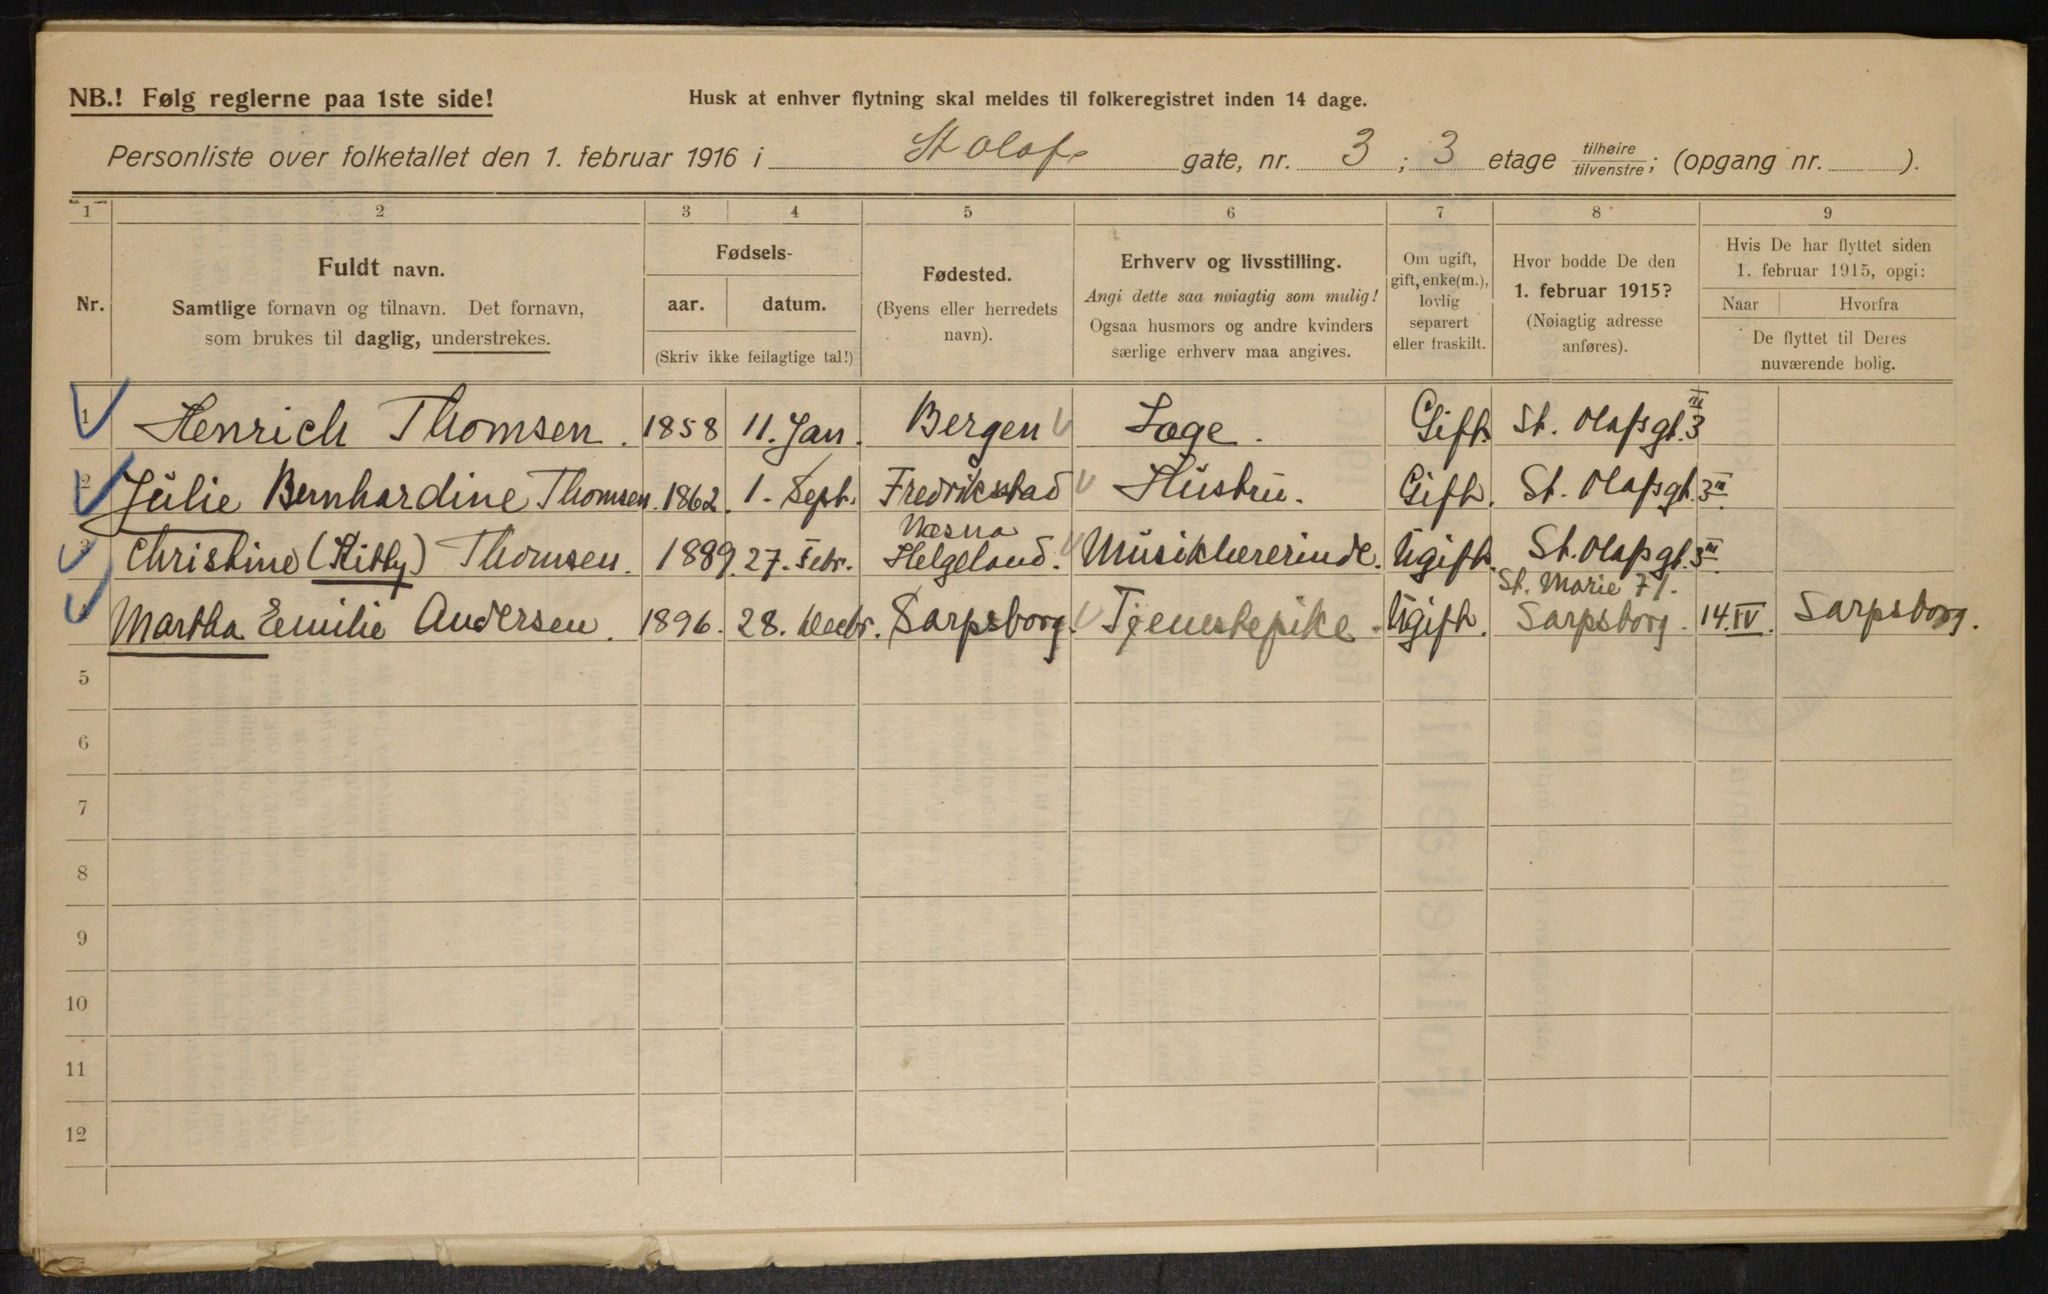 NB.! Følg reglerne paa 1ste side!
Husk at enhver flytning skal meldes til folkeregistret inden 14 dage.
Personliste over folketallet den 1. februar 1916 i St Olafs gate, nr. 3; 3 etage tilhøire/tilvenstre; (opgang nr. ).
1 2 3 4 5 6 7 8 9
Nr.
Fuldt navn.
Samtlige fornavn og tilnavn. Det fornavn,
som brukes til daglig, understrekes.
Fødsels-
aar. datum.
(Skriv ikke feilagtige tal!)
Fødested.
(Byens eller herredets
navn).
Erhverv og livsstilling.
Angi dette saa nøiagtig som mulig!
Ogsaa husmors og andre kvinders
særlige erhverv maa angives.
Om ugift,
gift, enke(m.),
lovlig
separert
eller fraskilt.
Hvor bodde De den
1. februar 1915?
(Nøiagtig adresse
anføres).
Hvis De har flyttet siden
1. februar 1915, opgi:
Naar Hvorfra
De flyttet til Deres
nuværende bolig.
1 Henrich Thomsen. 1858 11. Jan. Bergen Læge. Gift St. Olafsgt. 3 III
2 Julie Bernhardine Thomsen. 1862. 1. Sept. Fredrikstad Hustru. Gift. St. Olafsgt. 3 III
3 Christine (Kitty) Thomsen. 1889. 27. Febr. Næsna Helgeland. Musiklærerinde. Ugift. St. Olafsgt. 3 III
4 Martha Emilie Andersen. 1896. 28. Decbr. Sarpsborg. Tjenestepike. Ugift. St. Marie 71. Sarpsborg. 14. IV. Sarpsborg.
5
6
7
8
9
10
11
12